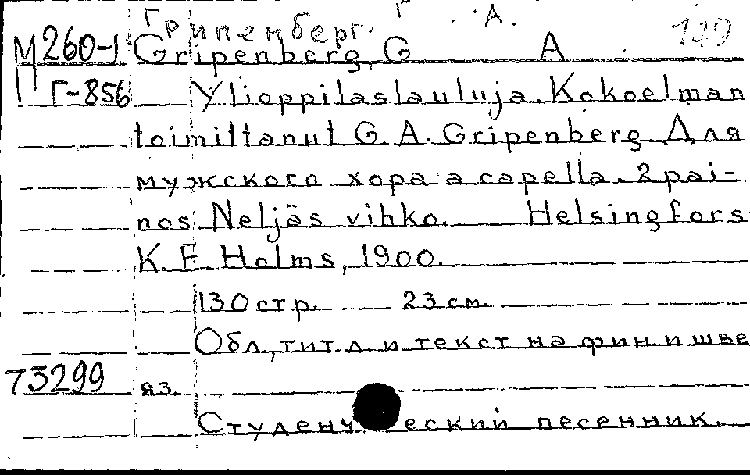 Грипенберг. Г. А.
М260-1 Gripenberg, G A 199
Г-856 Ylioppilaslauluja. Kokoelman
toimittanut G. A. Gripenberg. Для
мужского хора a capella. 2 pai-
nos. Neljäs vihko. Helsingfors
K. E. Holms, 1900.
130 стр. 23 см.
Обл., тит. л. и текст на фин. и шве
73299 яз.
Студенческий песенник.